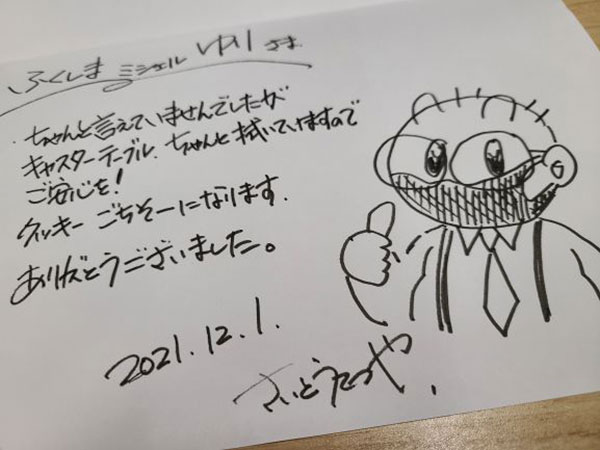 ふくしま ミシェル ゆり さま
・ちゃんと言えていませんでしたが
キャスターテーブル、ちゃんと拭いていますので
ご安心を!
クッキー ごちそーになります.
ありがとうございました。
2021.12.1.
さいとうたつや.